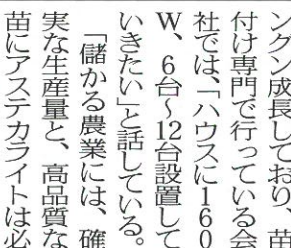 ングン成長しており、苗
付け専門で行っている会
社では、「ハウスに160
W、6台〜12台設置して
いきたい」と話している。
「儲かる農業には、確
実な生産量と、高品質な
苗にアステカライトは必